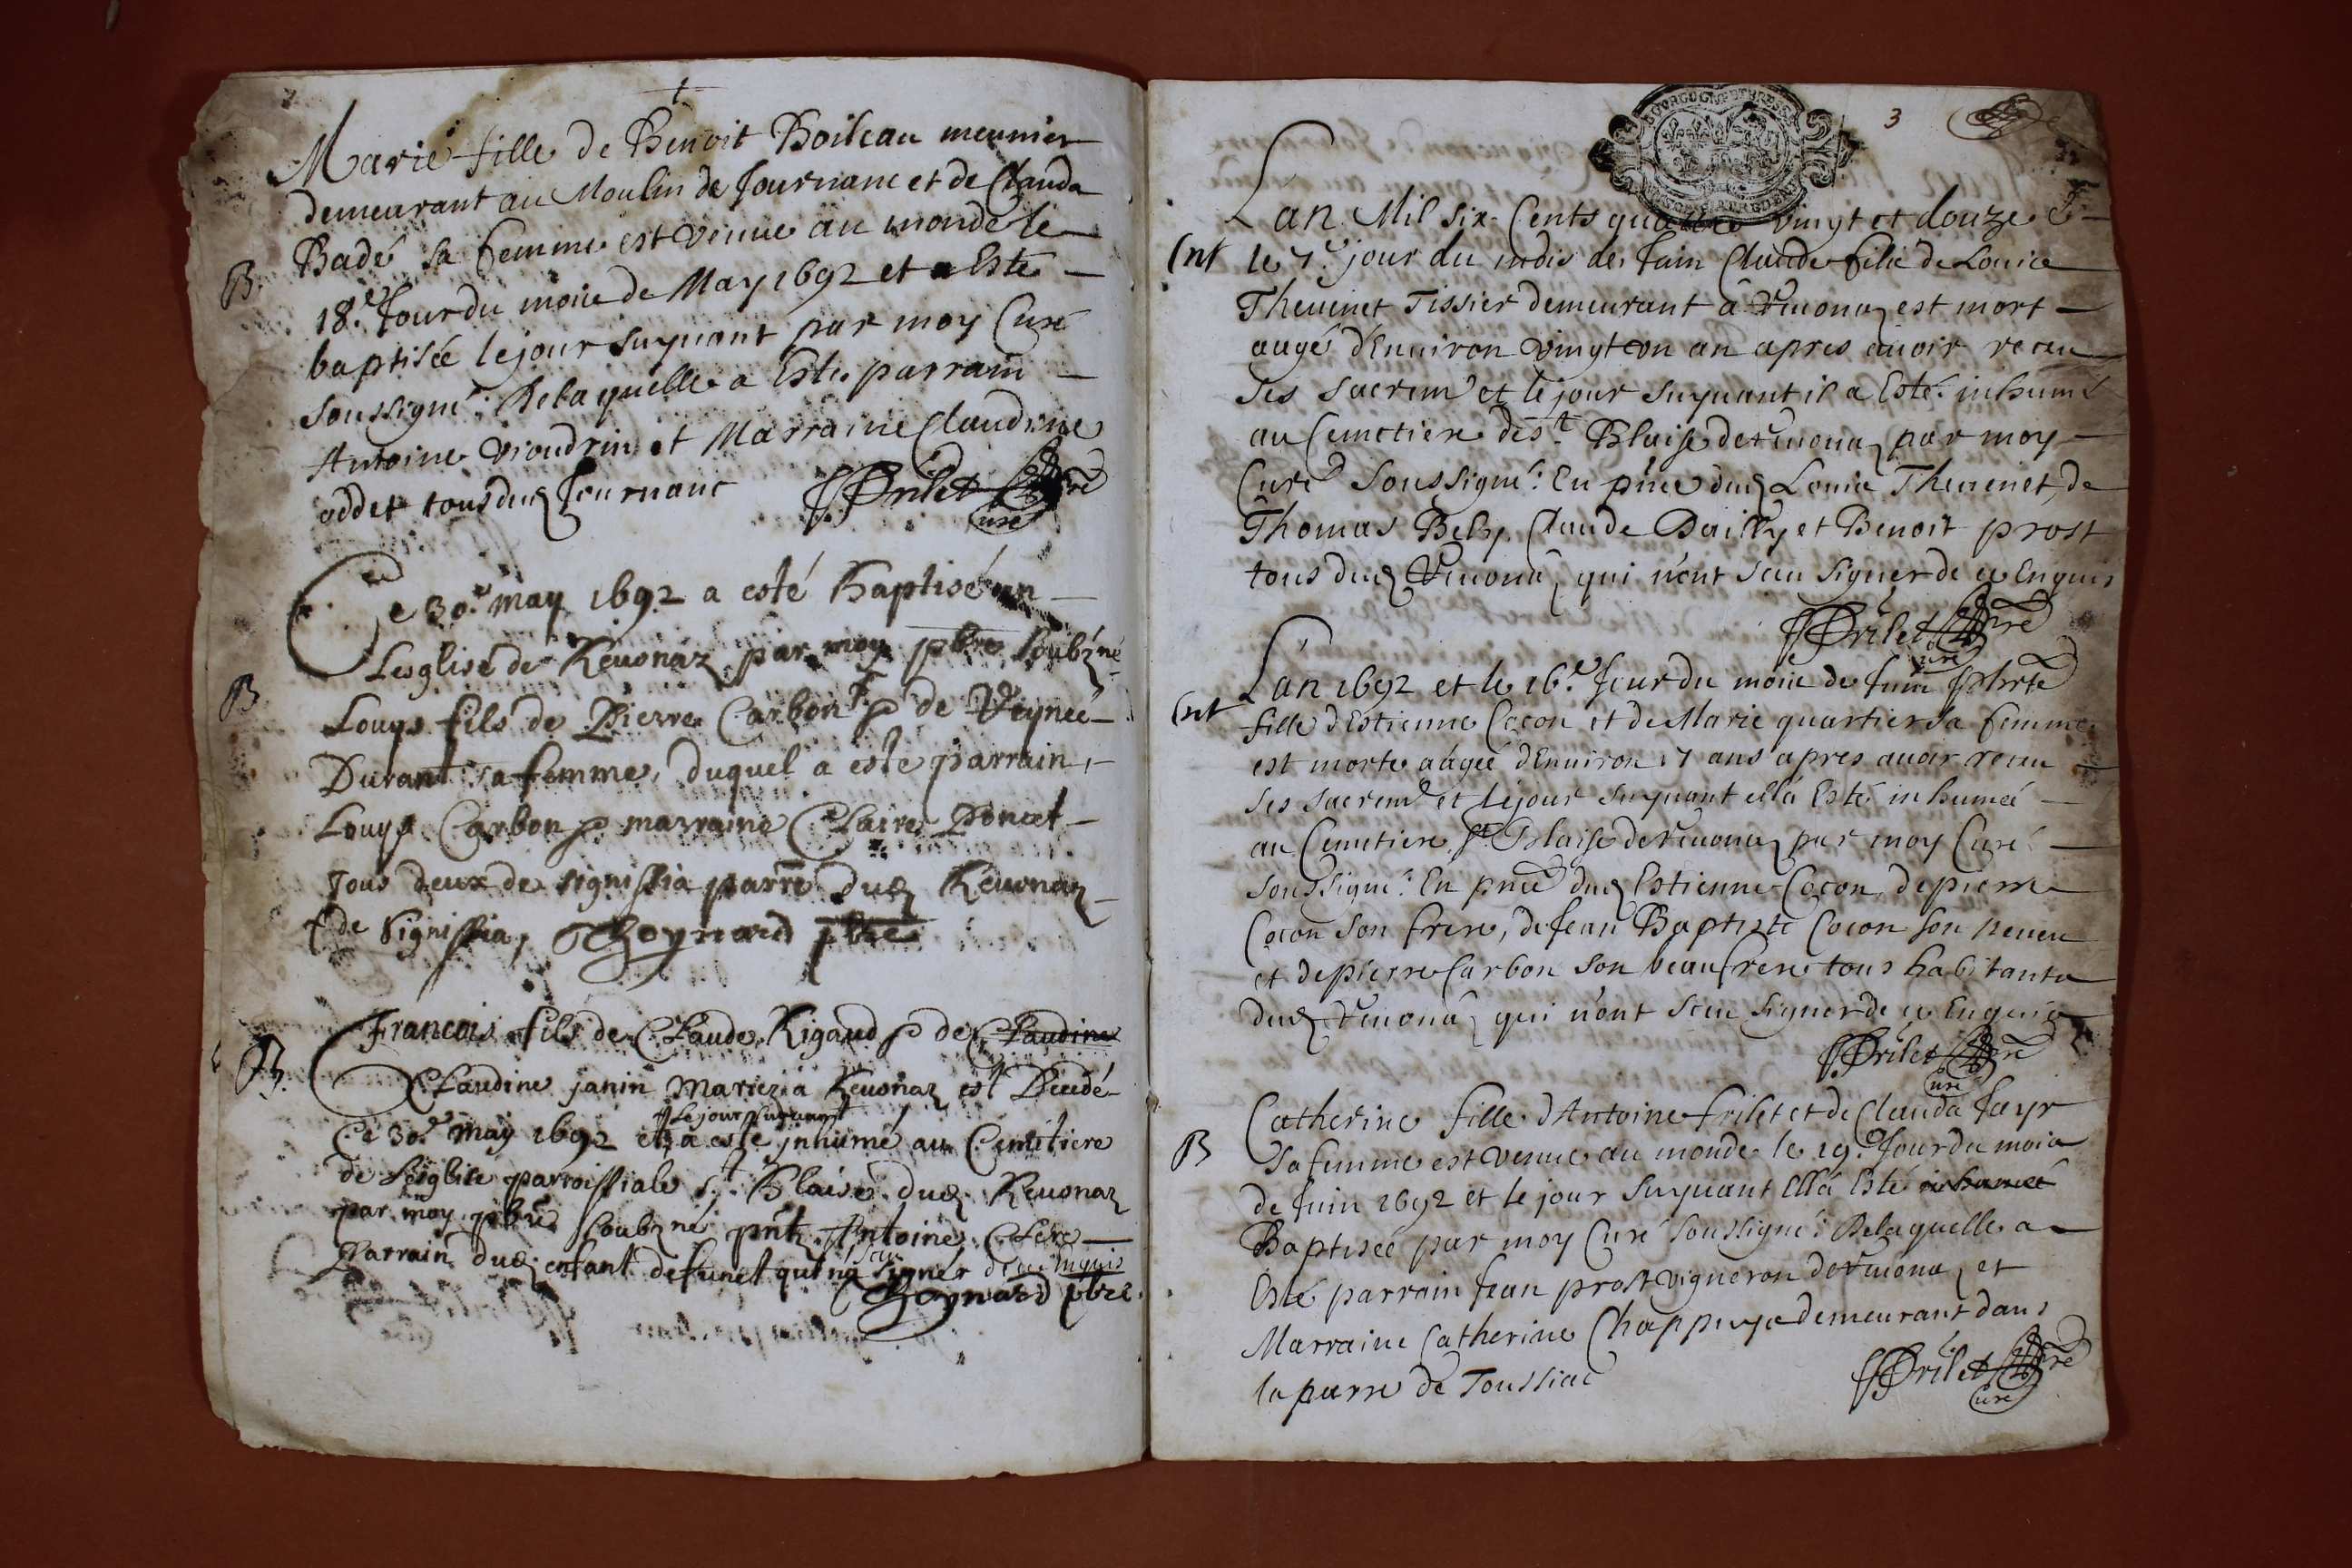 Marie fille de Benoit Boileau meunier
demeurant au Moulin de Journanc et de Clauda
Badé sa femme est venue au monde le
B. 18.e Jour du moie de May 1692 et a Esté
baptisée le jour suyuant par moy Curé
soussigné: De laquelle a Esté parrain
Antoine Vioudrin et Marraine Claudine
oddet tous dud Journanc F Frilet pbre
Curé
Ce 30.e may 1692 a esté Baptisé en
Lesglise de Reuonaz par moy pbre soubzné
B Louys fils de Pierre Carbon & de
Durant sa femme, duquel a esté parrain,
Louys Carbon & marraine Claire Poncet
Tous deux de signissia parre dud Reuonaz
de signissia, Reynard pbre
Francois fils de Claude Rigaud & de Claudine
B. Claudine janin Mariez a Reuonaz est Decedé
le jour suyuant
Ce 30.e may 1692 et a esté jnhumé au Cemitiere
de Lesglise parroissiale St. Blaise dud. Reuonaz
par moy pbre soubzné pnt Antoine Clere
sceu
Parrain dud enfant defunct qui na signer de ce enquis
Reynard pbre.
3
Lan Mil six Cents quattre vingt et douze &
Ent le 7.e jour du mois de Juin Claude filie de Louie
Theuenet Tissier demeurant a Reuonaz est mort
aagé d'Enuiron vingt un an apres auoir receu
ses sacrem et le jour suyuant il a Esté inhumé
au Cemetiere de St Blaise de Reuonaz par moy
Curé Soussigné: En pnce dud Louie Theuenet, de
Thomas Bely, Claude Dailly et Benoit prost
tous dud Reuona qui n'ont sceu signer de ce Enquis
F Frilet pbre
Curé
L'an 1692 et le 16.e Jour du moie de Juin
Ent fille d'Estienne Cocon et de Marie quartier sa femme
est morte aagée d'Enuiron 17 ans apres auoir receu
ses sacrem et le jour suyuant ella Esté inhumée
au Cemetiere St Blaise de Reuonaz par moy Curé
soussigné: En pnce dud Estienne Cocon, de pierre
Cocon son frere, de Jean Baptiste Cocon son neueu
et de pierre Carbon son beaufrere tous habitants
dud Reuona qui n'ont sceu signer de ce Enquis
F Frilet pbre
Curé
Catherine fille d'Antoine frilet et de Clauda Jayr
B sa femme est venue au monde le 19.e Jour du moie
de Juin 1692 et le jour suyuant Ella Esté inhumée
Baptisée par moy Curé soussigné: De laquelle a
Esté parrain Jean prost vigneron de Reuonaz et
Marraine Catherine Chappuys demeurant dans
la parre de Toussiac F Frilet pbre
Curé